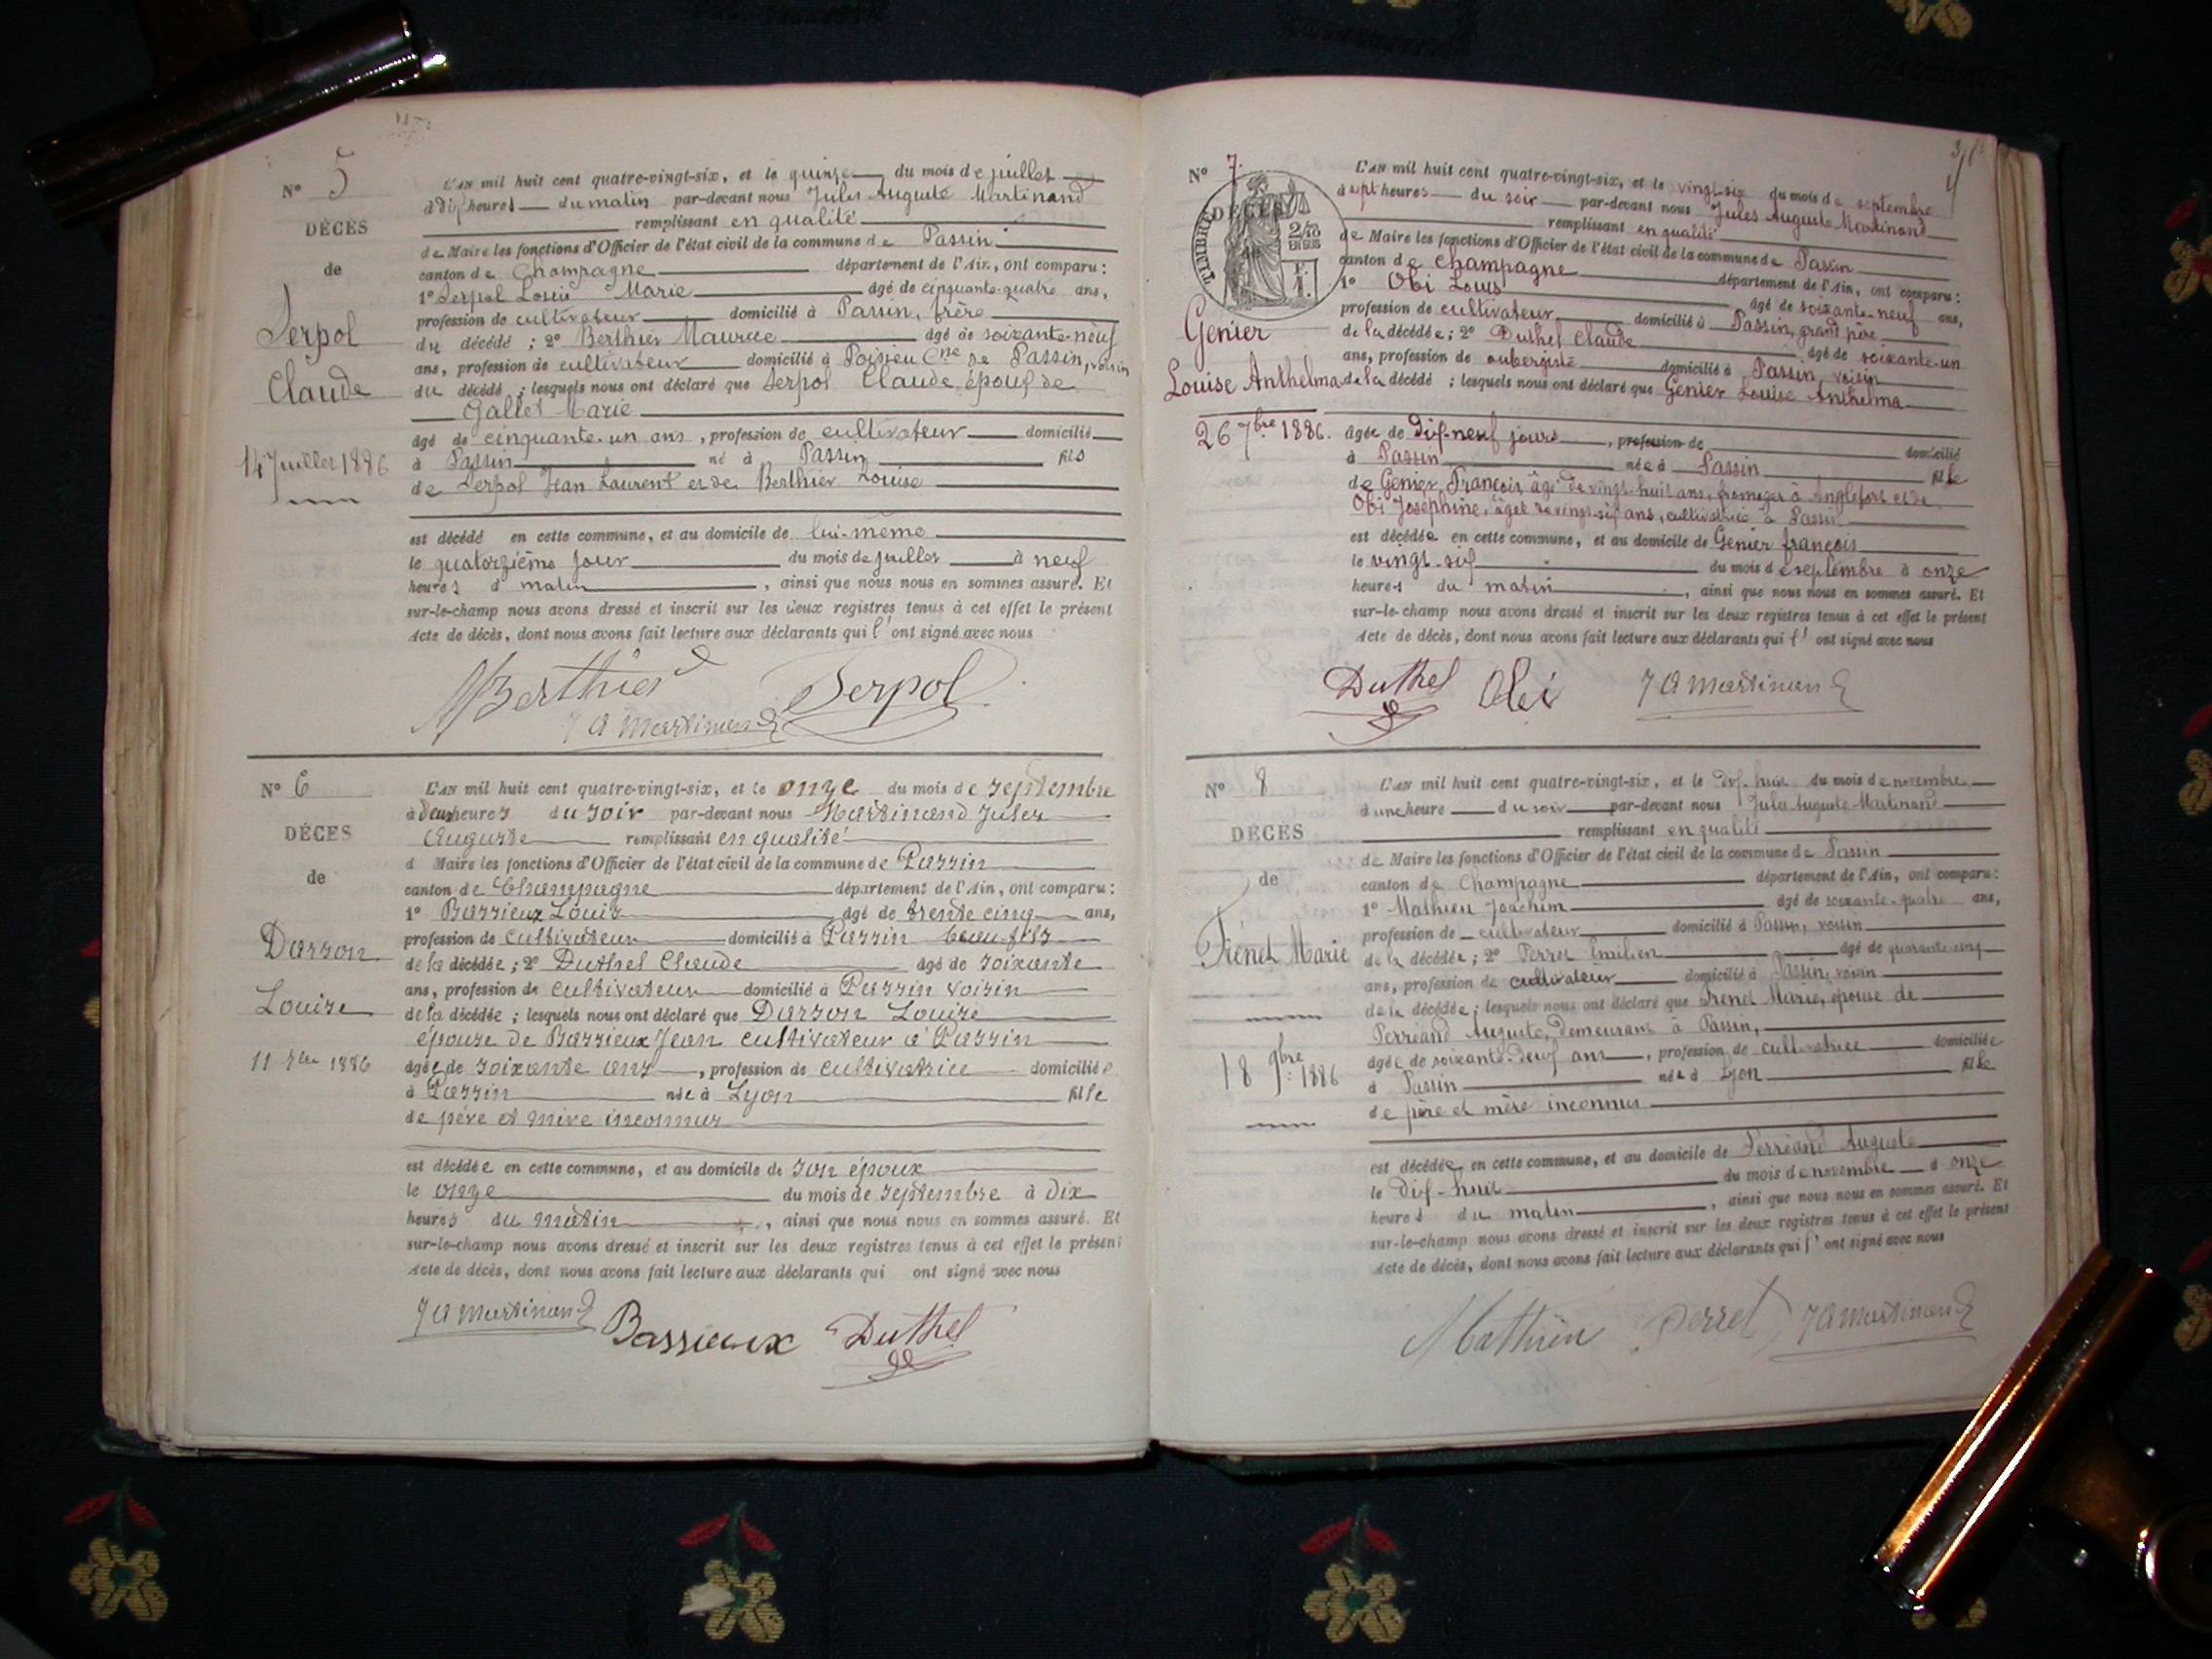 N° 5
DÉCÈS
de
Serpol
Claude
14 Juillet 1886
L'AN mil huit cent quatre-vingt-six, et le quinze du mois de juillet
à dix heures du matin par-devant nous Jules Auguste Martinand
remplissant en qualité
de Maire les fonctions d'Officier de l'état civil de la commune de Passin
canton de Champagne département de l'Ain, ont comparu :
1° Serpol Louis Marie âgé de cinquante-quatre ans,
profession de cultivateur domicilié à Passin, frère
du décédé ; 2° Berthier Maurice âgé de soixante-neuf
ans, profession de cultivateur domicilié à Poisieu Cne de Passin, voisin
du décédé ; lesquels nous ont déclaré que Serpol Claude, époux de
Gallet Marie
âgé de cinquante-un ans, profession de cultivateur domicilié
à Passin né à Passin fils
de Serpol Jean Laurent et de Berthier Louise
est décédé en cette commune, et au domicile de lui-même
le quatorzième jour du mois de juillet à neuf
heures d matin, ainsi que nous nous en sommes assuré. Et
sur-le-champ nous avons dressé et inscrit sur les deux registres tenus à cet effet le présent
Acte de décès, dont nous avons fait lecture aux déclarants qui l'ont signé avec nous
M Berthier Serpol
J A Martinand
N° 6
DÉCÈS
de
Darson
Louise
11 7bre 1886
L'AN mil huit cent quatre-vingt-six, et le onze du mois de septembre
à deux heures du soir par-devant nous Martinand Jules
Auguste remplissant en qualité
d Maire les fonctions d'Officier de l'état civil de la commune de Passin
canton de Champagne département de l'Ain, ont comparu :
1° Bassieux Louis âgé de trente cinq ans,
profession de cultivateur domicilié à Passin beau-fils
de la décédée ; 2° Duthel Claude âgé de soixante
ans, profession de cultivateur domicilié à Passin voisin
de la décédée ; lesquels nous ont déclaré que Darson Louise
épouse de Bassieux Jean cultivateur à Passin
âgée de soixante ans, profession de cultivatrice domiciliée
à Passin née à Lyon fille
de père et mère inconnus
est décédée en cette commune, et au domicile de son époux
le onze du mois de septembre à dix
heures du matin, ainsi que nous nous en sommes assuré. Et
sur-le-champ nous avons dressé et inscrit sur les deux registres tenus à cet effet le présent
Acte de décès, dont nous avons fait lecture aux déclarants qui ont signé avec nous
J A Martinand Bassieux Duthel
N° 7.
DÉCÈS
TIMBRE
2/10 EN SUS
Genier
Louise Anthelma
26 7bre 1886.
L'AN mil huit cent quatre-vingt-six, et le vingt-six du mois de septembre
à sept heures du soir par-devant nous Jules Auguste Martinand
remplissant en qualité
de Maire les fonctions d'Officier de l'état civil de la commune de Passin
canton de Champagne département de l'Ain, ont comparu :
1° Obi Louis âgé de soixante-neuf ans,
profession de cultivateur domicilié à Passin, grand père
de la décédée ; 2° Duthel Claude âgé de soixante-un
ans, profession de aubergiste domicilié à Passin, voisin
de la décédé ; lesquels nous ont déclaré que Genier Louise Anthelma
âgée de dix-neuf jours, profession de domicilié
à Passin née à Passin fille
de Genier François, âgé de vingt-huit ans, fromager à Anglefort et de
Obi Joséphine, âgée de vingt-six ans, cultivatrice à Passin
est décédée en cette commune, et au domicile de Genier françois
le vingt-six du mois de septembre à onze
heures du matin, ainsi que nous nous en sommes assuré. Et
sur-le-champ nous avons dressé et inscrit sur les deux registres tenus à cet effet le présent
Acte de décès, dont nous avons fait lecture aux déclarants qui l'ont signé avec nous
Duthel Obi J A Martinand
N° 8
DÉCÈS
de
Frénet Marie
18 9bre 1886
L'AN mil huit cent quatre-vingt-six, et le dix-huit du mois de novembre
à une heure du soir par-devant nous Jules Auguste Martinand
remplissant en qualité
de Maire les fonctions d'Officier de l'état civil de la commune de Passin
canton de Champagne département de l'Ain, ont comparu :
1° Mathieu Joachim âgé de soixante-quatre ans,
profession de cultivateur domicilié à Passin, voisin
de la décédée ; 2° Perret Emilien âgé de quarante-cinq
ans, profession de cultivateur domicilié à Passin, voisin
de la décédée ; lesquels nous ont déclaré que Frénet Marie, épouse de
Perréand Auguste, demeurant à Passin,
âgée de soixante-deux ans, profession de cultivatrice domiciliée
à Passin née à Lyon fille
de père et mère inconnus
est décédée en cette commune, et au domicile de Perréand Auguste
le dix-huit du mois de novembre à onze
heures du matin, ainsi que nous nous en sommes assuré. Et
sur-le-champ nous avons dressé et inscrit sur les deux registres tenus à cet effet le présent
Acte de décès, dont nous avons fait lecture aux déclarants qui l'ont signé avec nous
Mathieu Perret J A Martinand